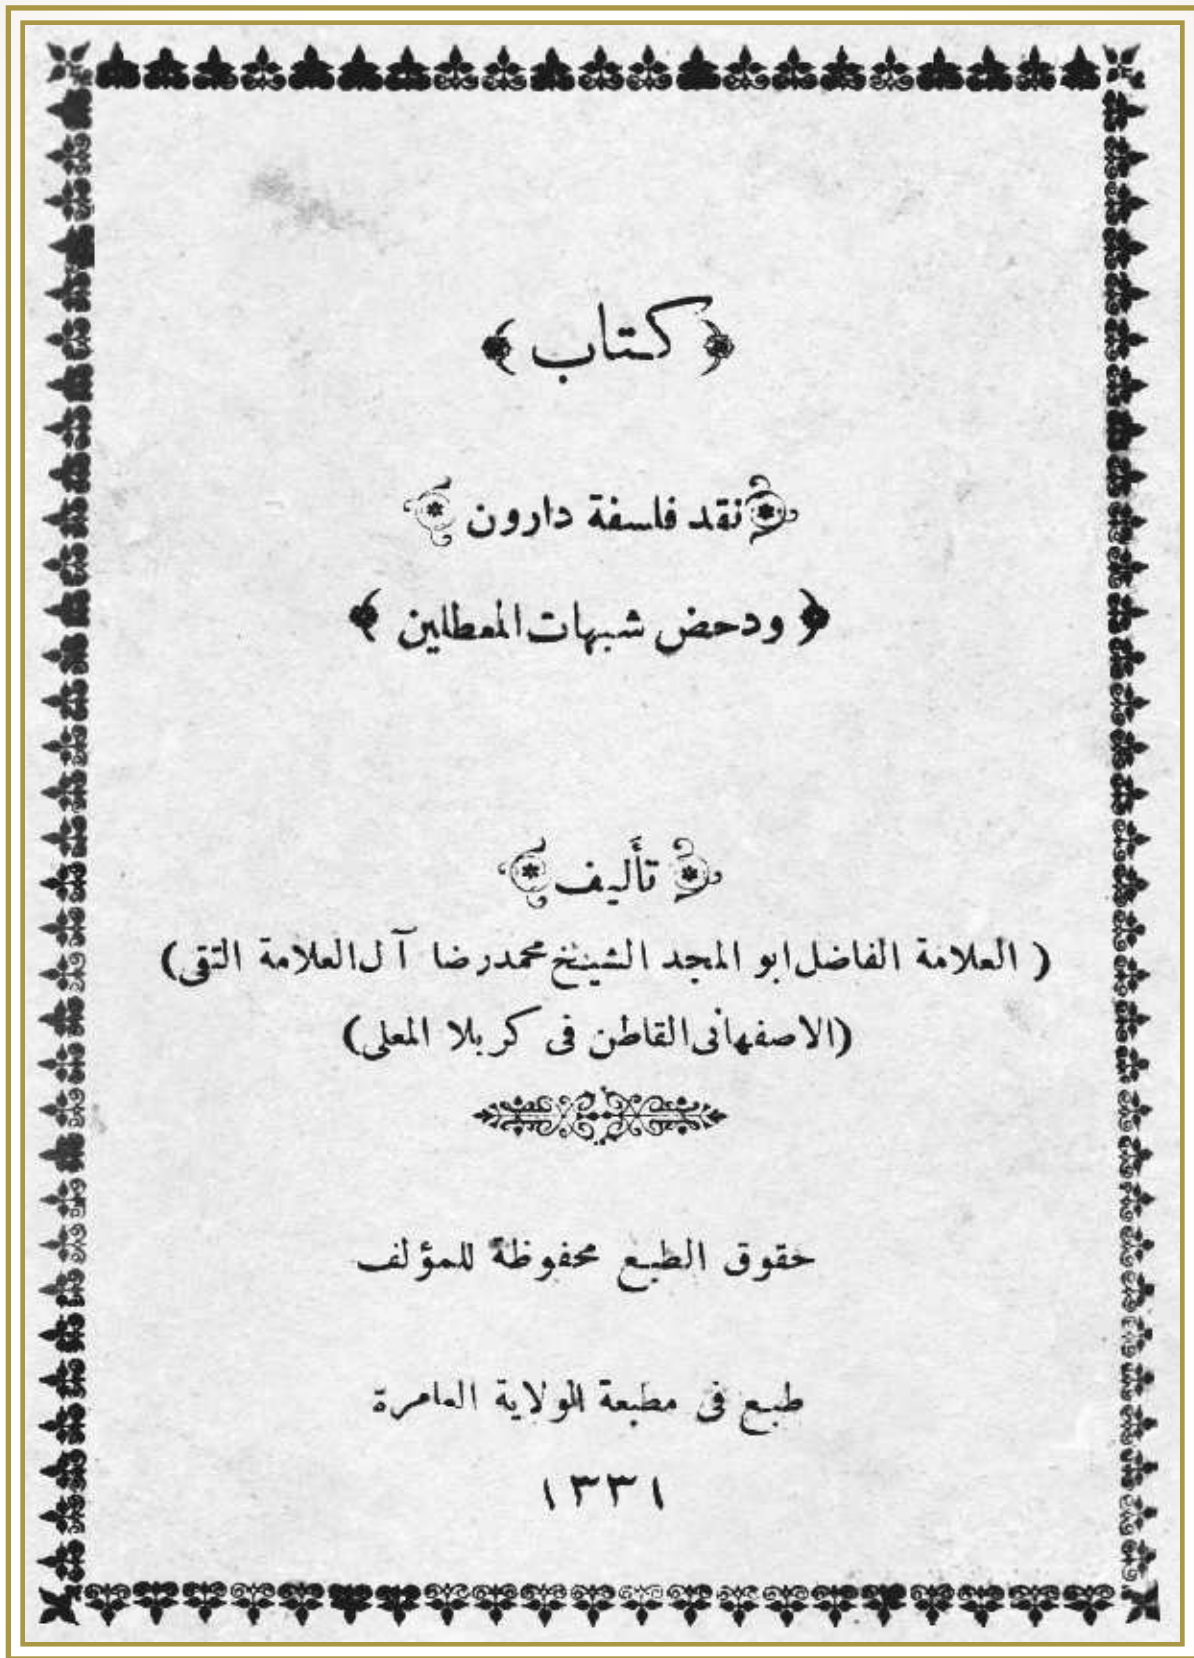 ﴿ كتاب ﴾
نقد فلسفة دارون
﴿ ودحض شبهات المعطلين ﴾
تأليف
( العلامة الفاضل ابو المجد الشيخ محمدرضا آل العلامة التقى)
(الاصفهانى القاطن فى كربلا المعلى)
حقوق الطبع محفوظة للمؤلف
طبع فى مطبعة الولاية العامرة
١٣٣١